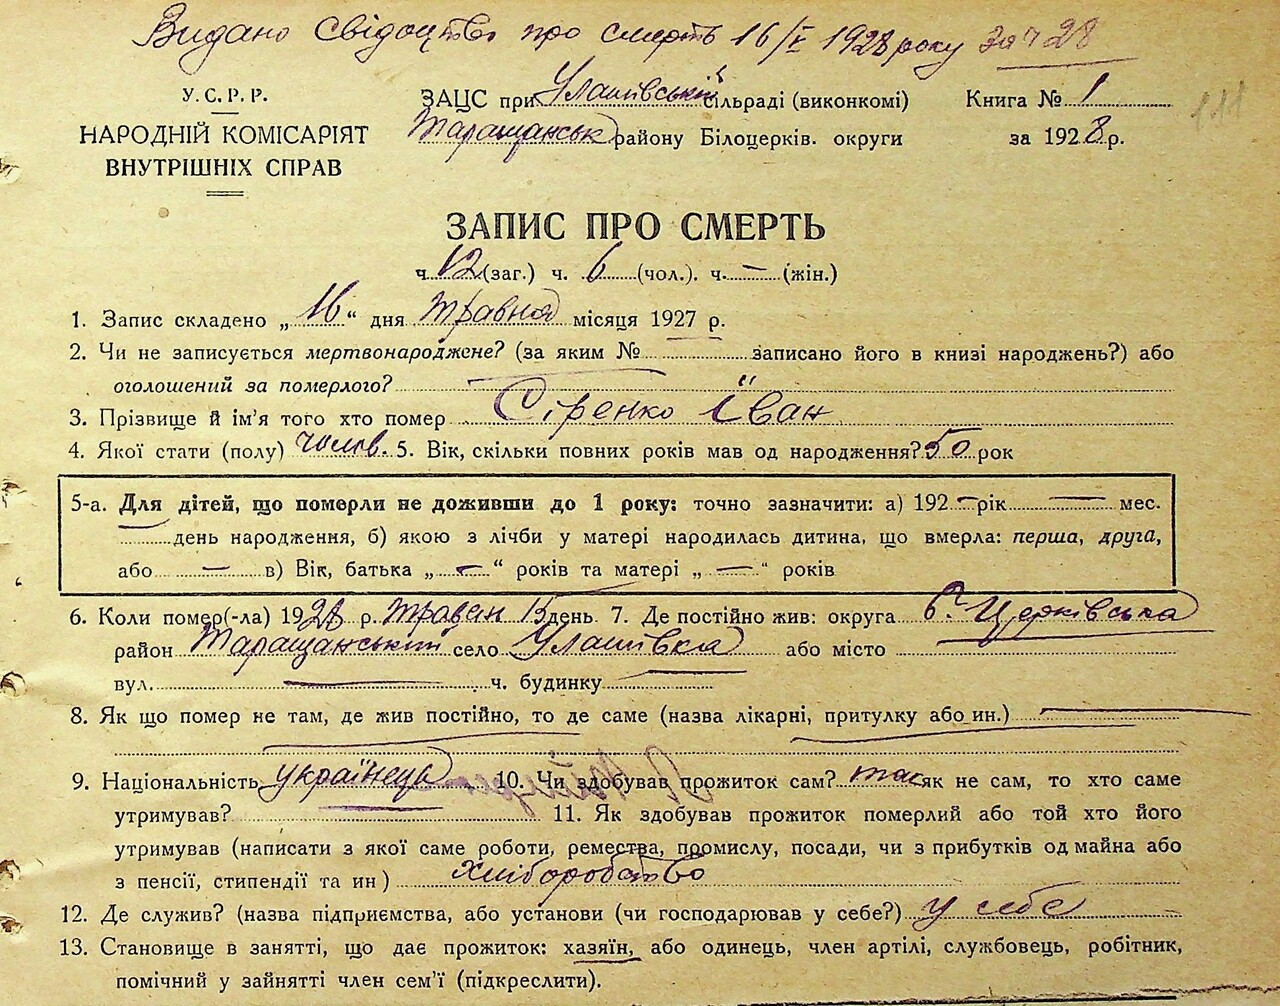 Видано Свідоцтво про смерть 16/V 1928 року за ч 28
У. С. Р. Р.
НАРОДНІЙ КОМІСАРІЯТ
ВНУТРІШНІХ СПРАВ
ЗАЦС при Улашівській сільраді (виконкомі)
Таращанськ району Білоцерків. округи
Книга № 1
за 1928 р.
111
ЗАПИС ПРО СМЕРТЬ
ч. 12 (заг.) ч. 6 (чол.). ч. — (жін.)
1. Запис складено „16“ дня Травня місяця 1927 р.
2. Чи не записується мертвонароджене? (за яким № записано його в книзі народжень?) або
оголошений за померлого?
3. Прізвище й ім'я того хто помер Сіренко Іван
4. Якої стати (полу) чолов. 5. Вік, скільки повних років мав од народження? 50 рок
5-а. Для дітей, що померли не доживши до 1 року: точно зазначити: а) 192 — рік — мес.
— день народження, б) якою з лічби у матері народилась дитина, що вмерла: перша, друга,
або — в) Вік, батька „ — “ років та матері „ — “ років
6. Коли помер(-ла) 1928 р. Травән 15 день 7. Де постійно жив: округа Б Церківська
район Таращанський село Улашівка або місто
вул. — ч. будинку
8. Як що помер не там, де жив постійно, то де саме (назва лікарні, притулку або ин.) —
9. Національність українець 10. Чи здобував прожиток сам? так як не сам, то хто саме
утримував? 11. Як здобував прожиток померлий або той хто його
утримував (написати з якої саме роботи, ремества, промислу, посади, чи з прибутків од майна або
з пенсії, стипендії та ин) хліборобство
12. Де служив? (назва підприємства, або установи (чи господарював у себе?) у себе
13. Становище в занятті, що дає прожиток: хазяїн, або одинець, член артілі, службовець, робітник,
помічний у зайнятті член сем'ї (підкреслити).